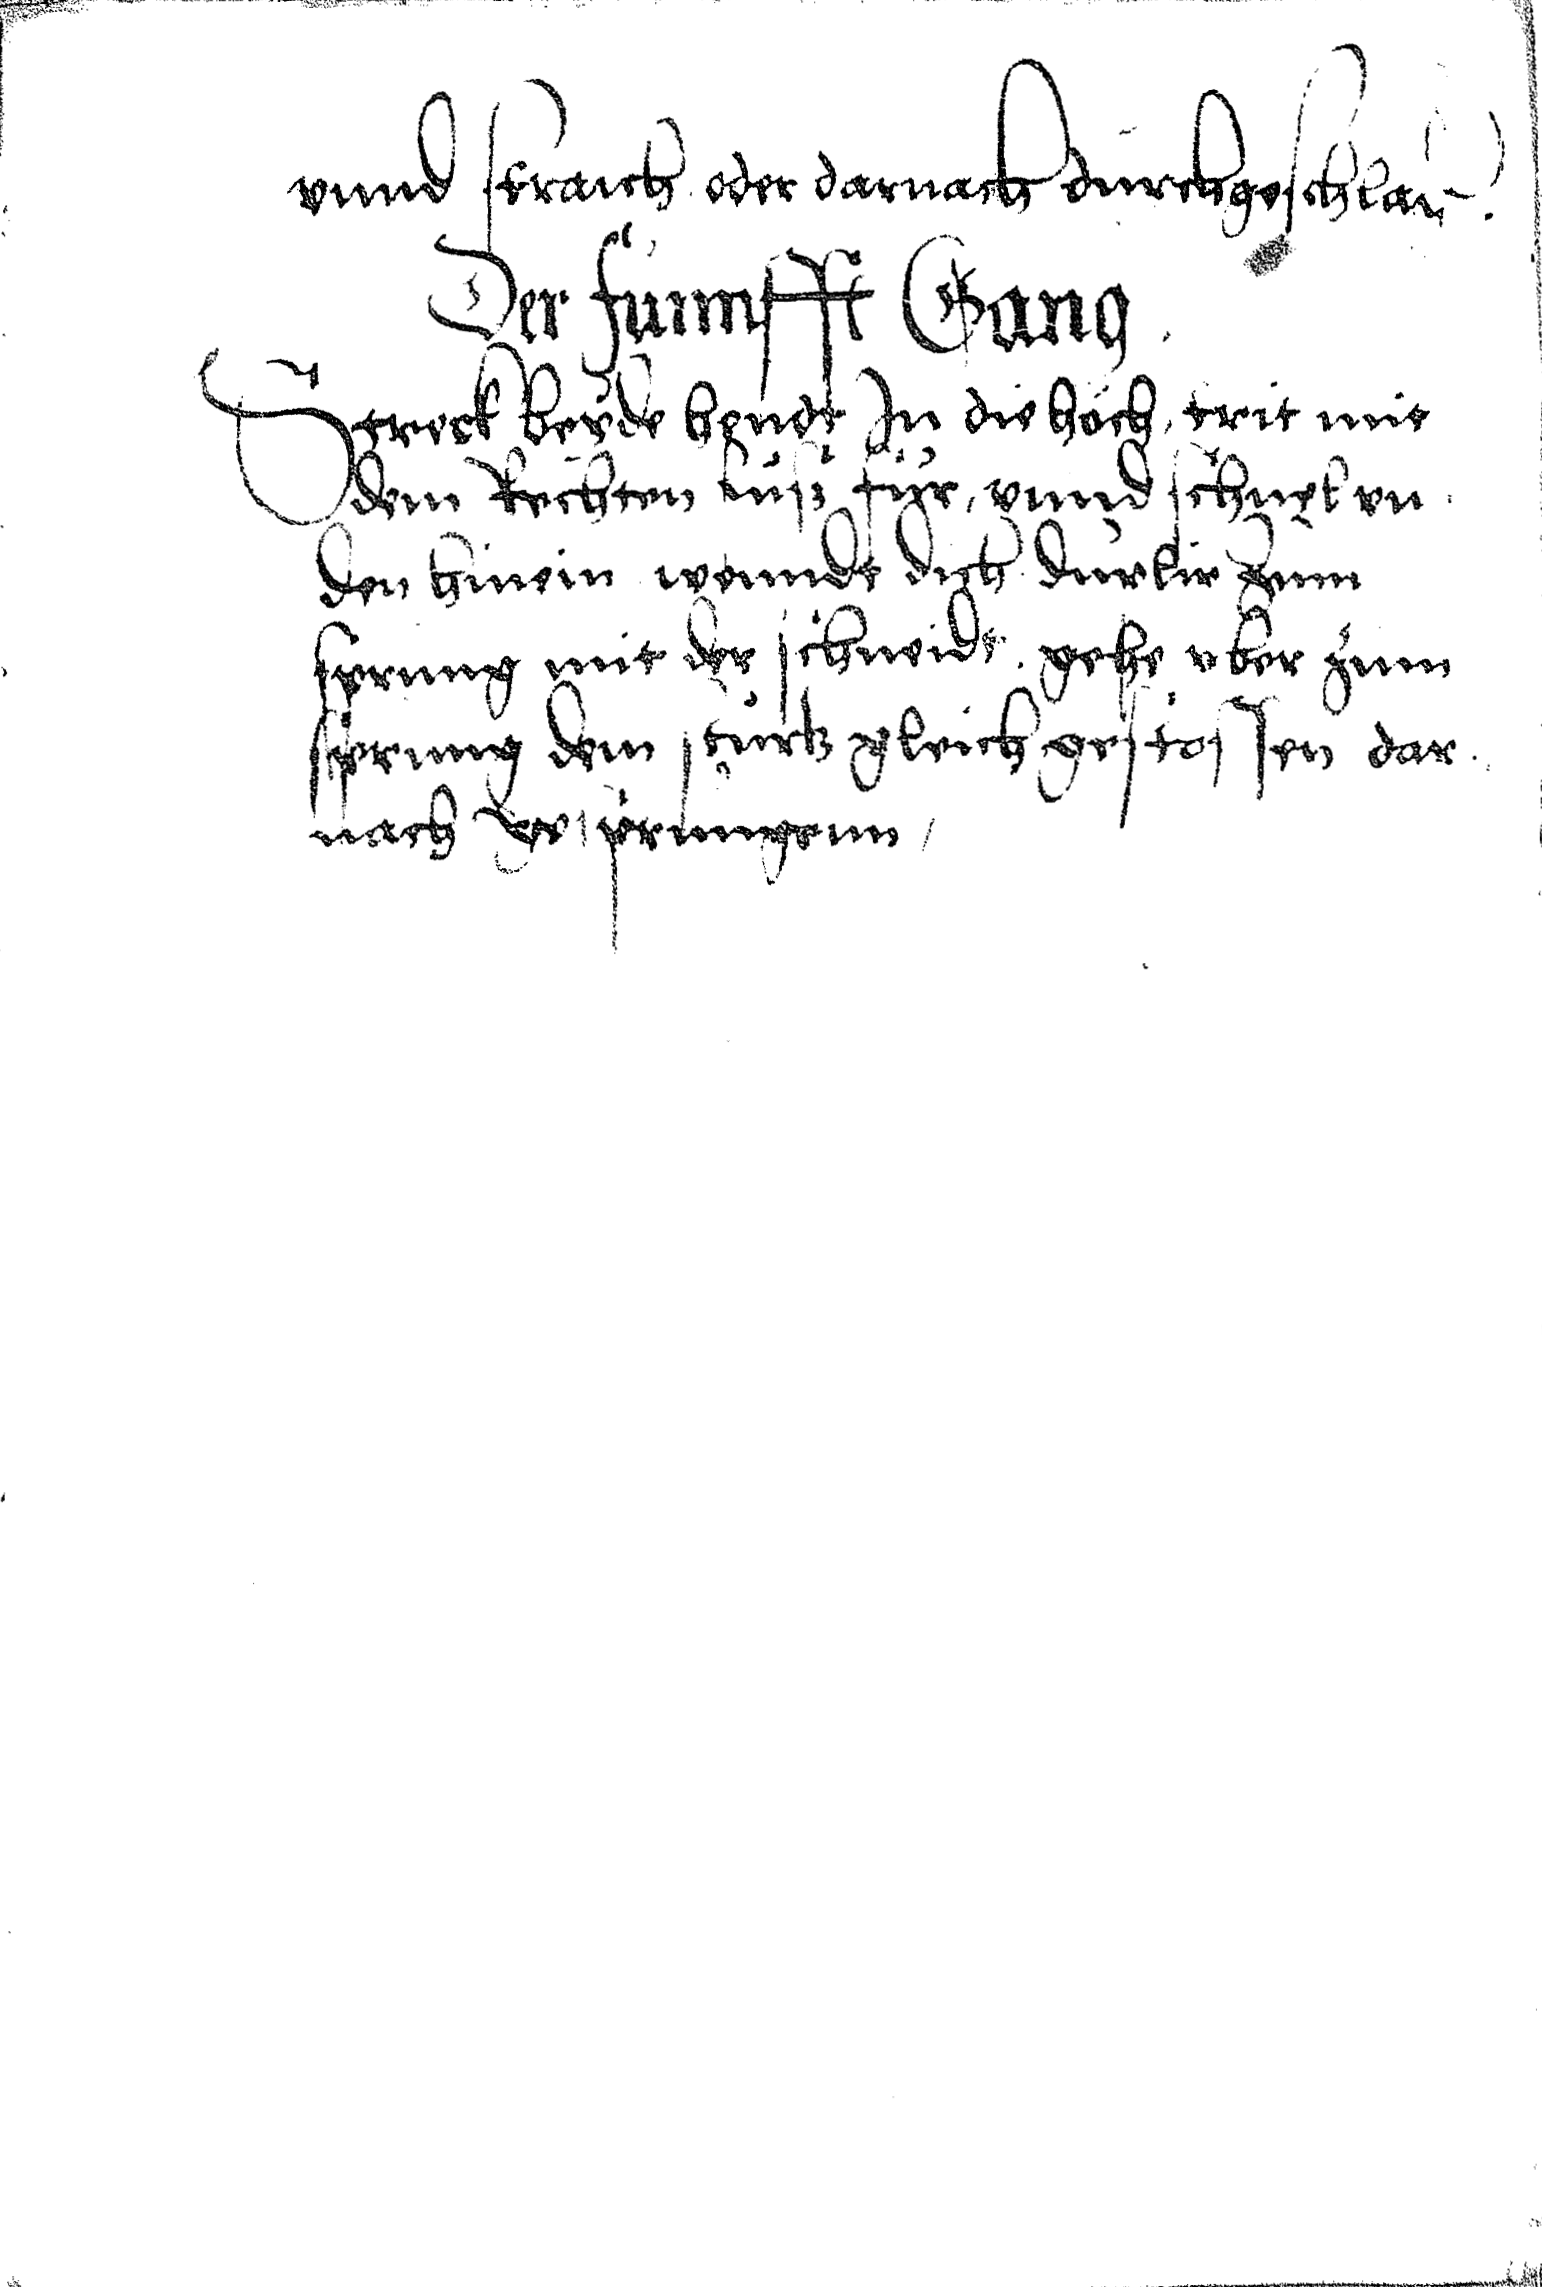 vnnd straich oder darnach durchgeschlan.
Der funnfft Gang.
Streck beyde hendt In die hoch, trit mit
dem Rechten fuß für, vnnd schnel vn
den hinein wenndt dich durkir zum
sprung mit der schneidt. gehe vber zum
sprung dem sturtz gleich gestossen dar
nach gesprungenn /